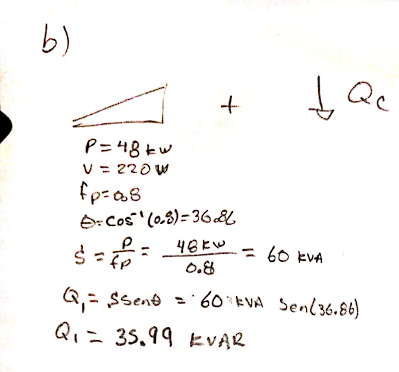 b)
+ ↓ Qc
P = 48 kw
V = 220 W
fp = 0.8
θ = cos⁻¹(0.8) = 36.86
S = P/fp = 48 kw/0.8 = 60 KVA
Q₁ = S sen θ = 60 KVA Sen(36.86)
Q₁ = 35.99 KVAR